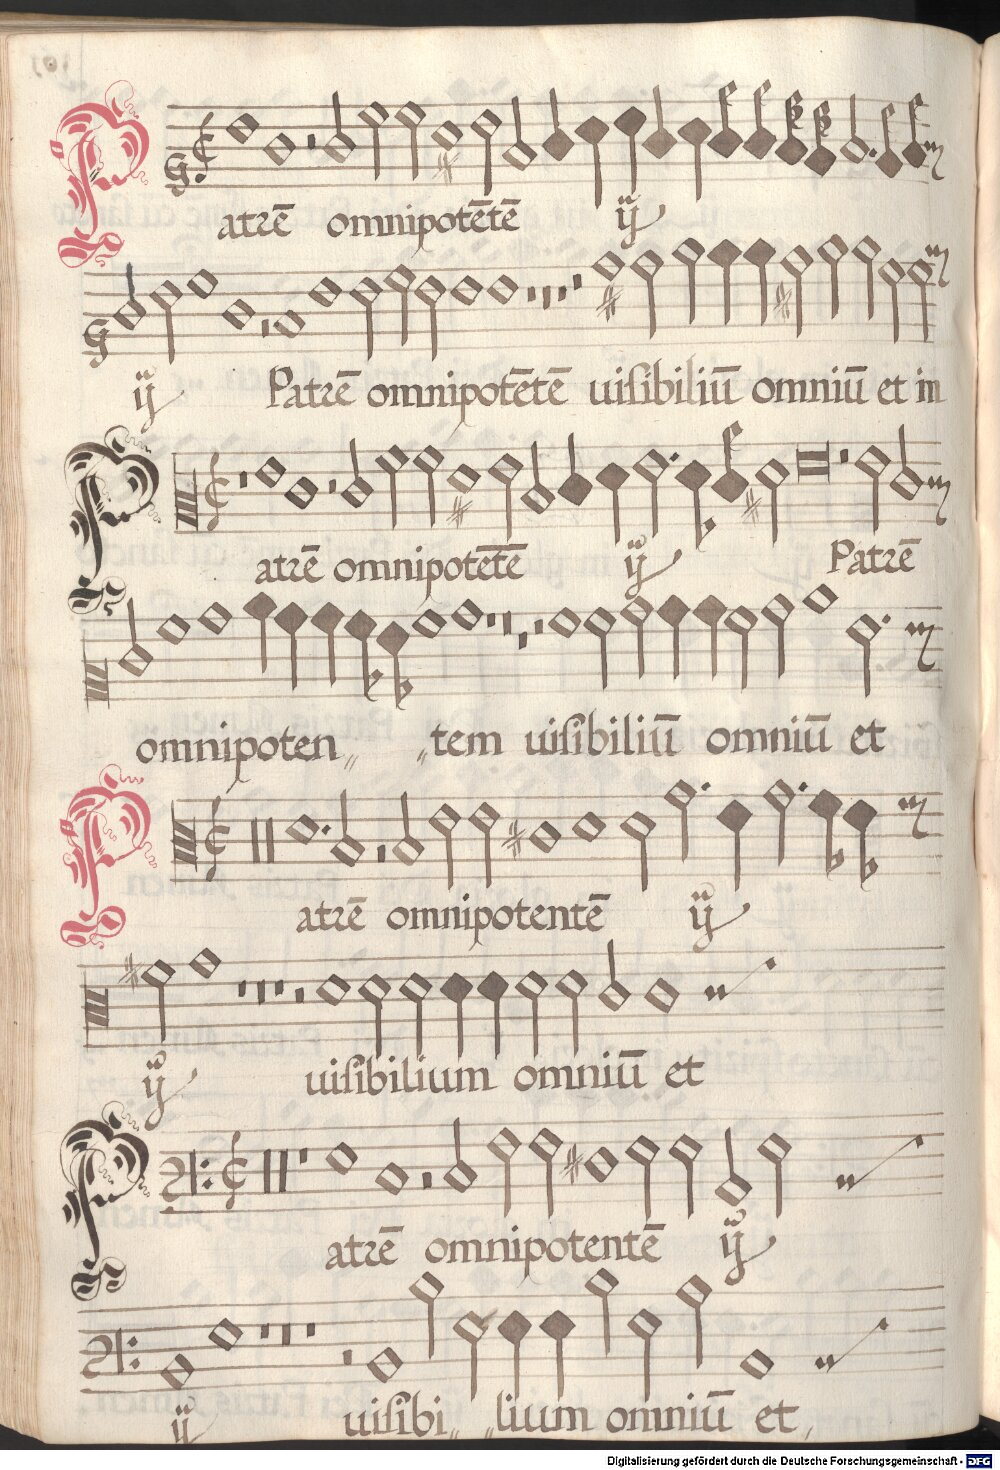 Patrē omnipotētē ij
ij Patrē omnipotētē uisibiliū omniū et in
Patrē omnipotētē ij Patrē
omnipoten„ „tem uisibiliū omniū et
Patrē omnipotentē ij
ij uisibilium omniū et
Patrē omnipotentē ij
ij uisibi„ „lium omniū et
Digitalisierung gefördert durch die Deutsche Forschungsgemeinschaft - DFG